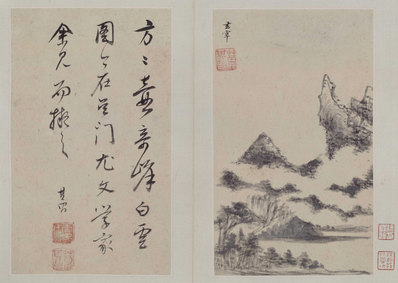 方〻壺奇峰白雲
圖今在吳門尤文學家
余見而擬之
其昌
玄宰